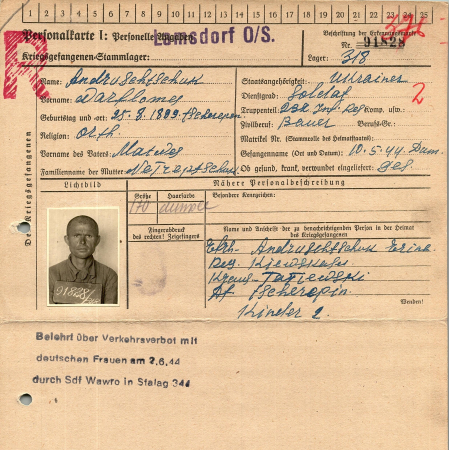 1 2 3 4 5 6 7 8 9 10 11 12 13 14 15 16 17 18 19 20 21 22 23 24 25
Personalkarte I: Personelle Angaben
Lamsdorf O/S.
Beschriftung der Erkennungsmarke
Nr. 91828
Kriegsgefangenen-Stammlager:
Lager: 318
R
2
Des Kriegsgefangenen
Name: Andruschtschuk
Vorname: Warflomej
Geburtstag und -ort: 25.8.1899 Tscherepin
Religion: orth.
Vorname des Vaters: Matwej
Familienname der Mutter:
Staatsangehörigkeit: Ukrainer
Dienstgrad: Soldat
Truppenteil: 232 Inf. Reg Komp. usw.:
Zivilberuf: Bauer Berufs-Gr.:
Matrikel Nr. (Stammrolle des Heimatstaates):
Gefangennahme (Ort und Datum): 10.5.44 Dum.
Ob gesund, krank, verwundet eingeliefert: ges.
Lichtbild
Nähere Personalbeschreibung
Größe
Haarfarbe
Besondere Kennzeichen:
170
dunkel
Fingerabdruck
des rechten! Zeigefingers
Name und Anschrift der zu benachrichtigenden Person in der Heimat
des Kriegsgefangenen
Andruschtschuk
Tscherepin.
Kinder 2
Wenden!
91828
Belehrt über Verkehrsverbot mit
deutschen Frauen am 2.6.44
durch Sdf Wawro in Stalag 344